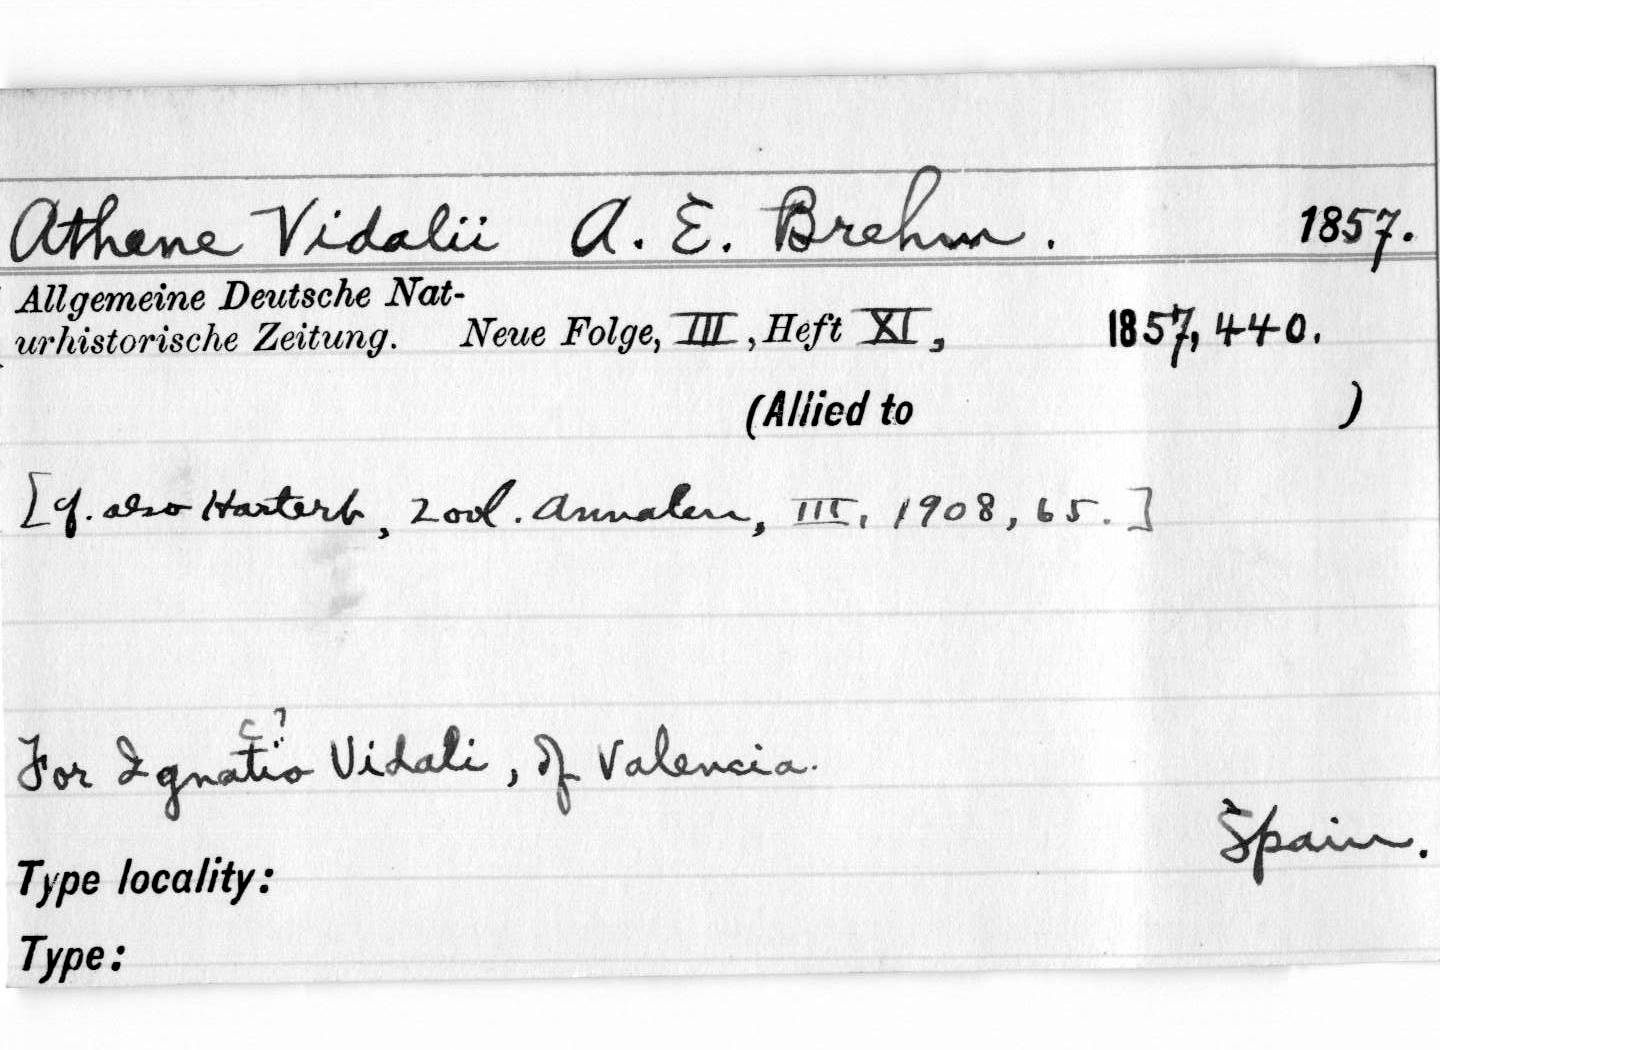 Athene Vidalii A. E. Brehm. 1857.
Allgemeine Deutsche Nat-
urhistorische Zeitung. Neue Folge, III, Heft XI, 1857, 440.
(Allied to )
[cf. also Hartert, Zool. Annalen, III, 1908, 65.]
c?
For Ignatio Vidali, of Valencia.
Spain.
Type locality:
Type: